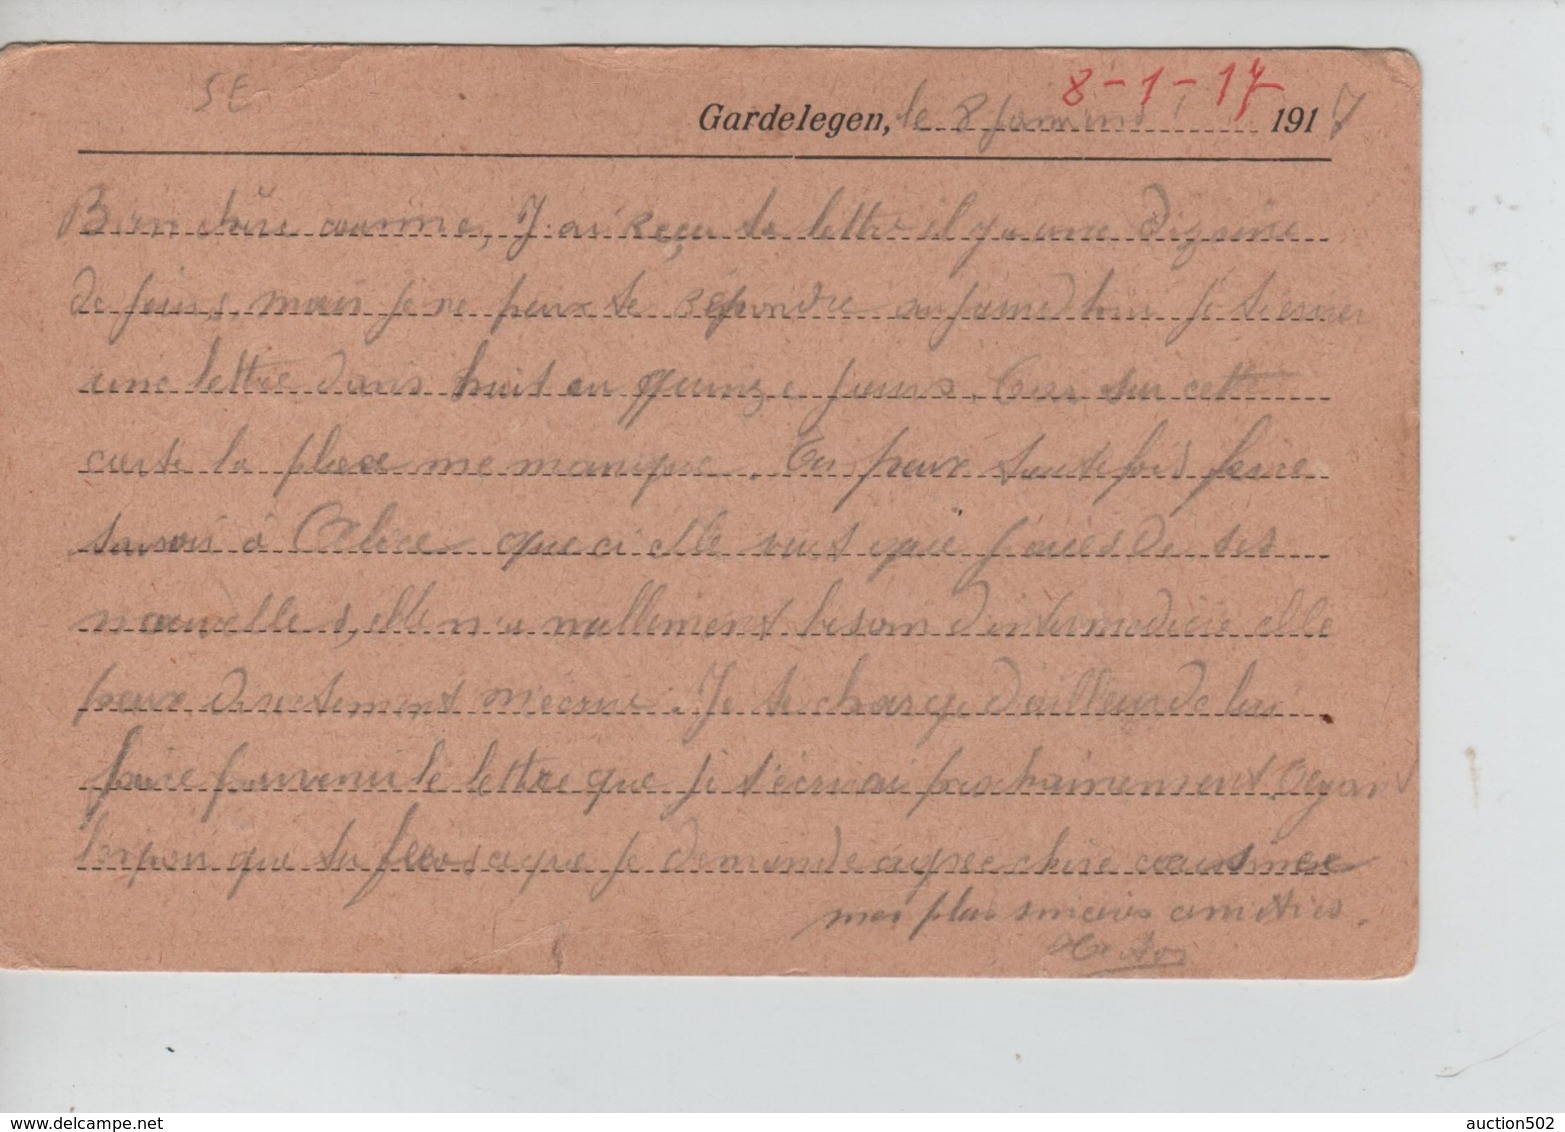 SE
8-1-17
Gardelegen, le 8 Janvier 1917
Bien chère cousine, J'ai Reçu ta lettre il y a une dizaine
de jours, mais je ne peux te répondre aujourd'hui je t'
une lettre dans huit ou quinze jours. Car sur cette
carte la place me manque. Tu peux toutefois faire
savoir à que si elle veut que j'aies de ses
nouvelles, elle n'a nullement besoin d'intermédiaire elle
peux directement m'écrire. Je te charge d'ailleurs de lui
faire parvenir le lettre que je t'écrirai prochainement. Ayant
l'espoir que tu feras ce que je demande agrée chère cousine
mes plus sincères amitiés.